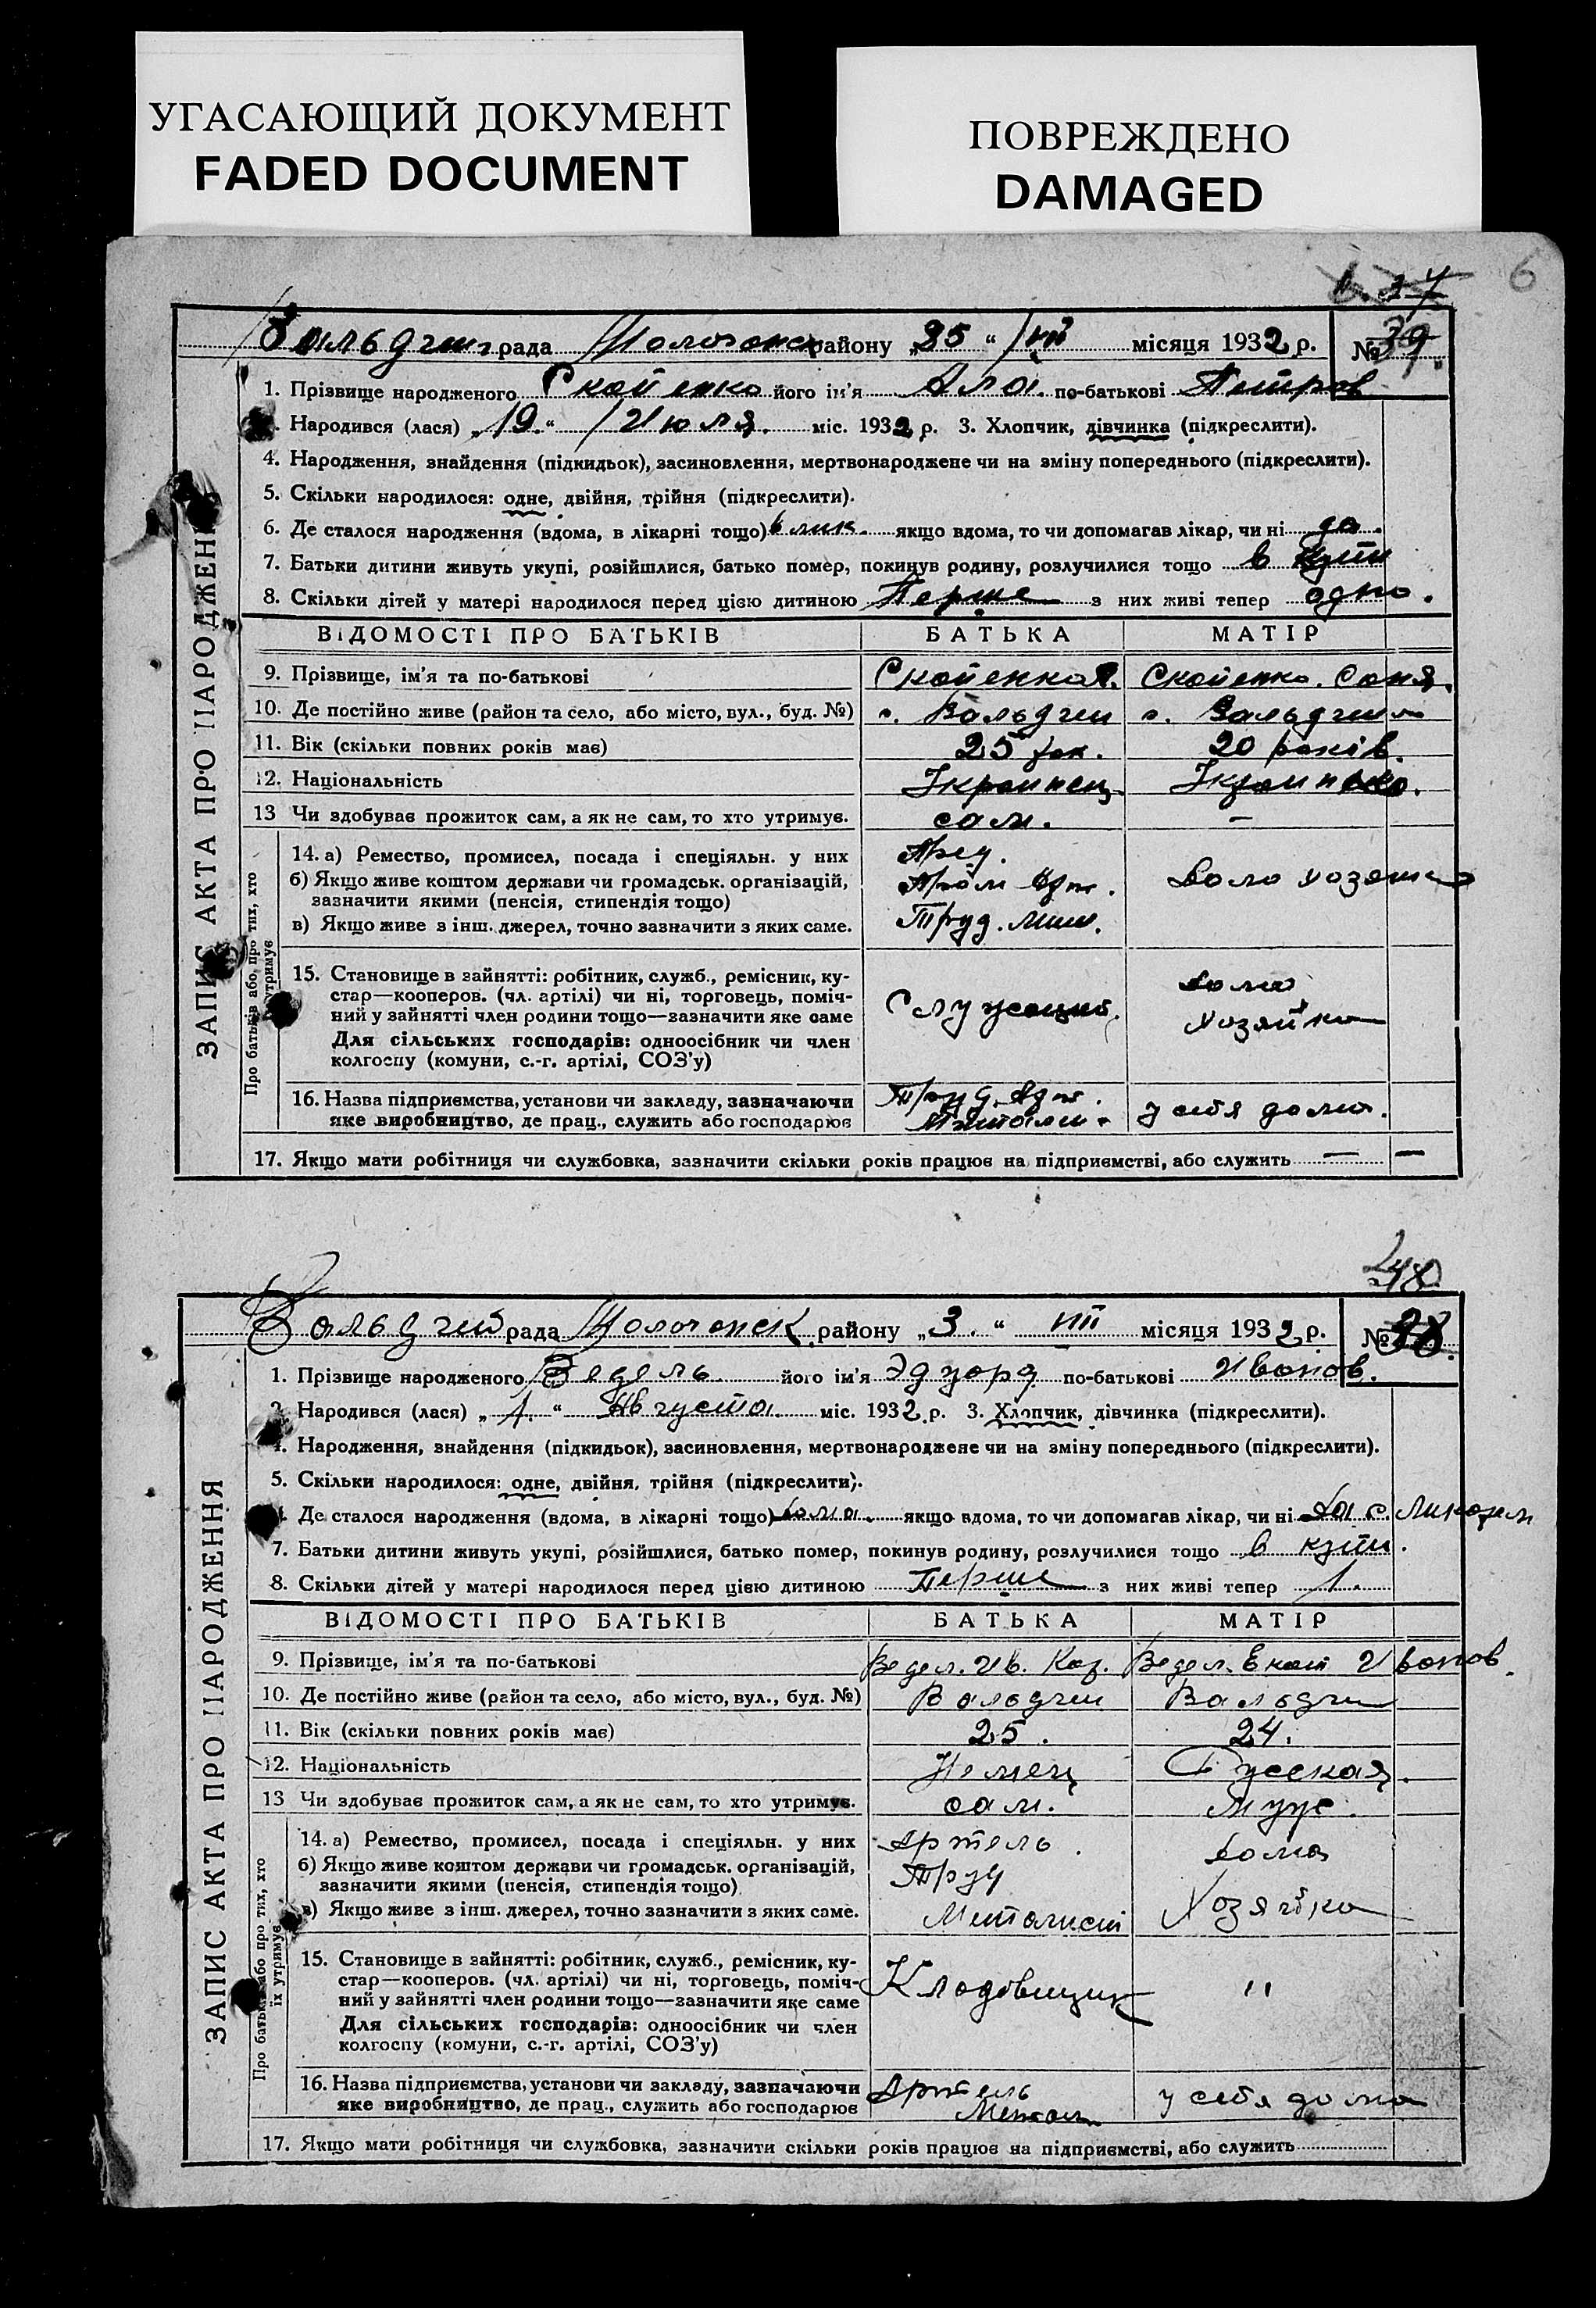 УГАСАЮЩИЙ ДОКУМЕНТ
FADED DOCUMENT
ПОВРЕЖДЕНО
DAMAGED
6
рада району „25“ місяця 1932 р. №
ЗАПИС АКТА ПРО НАРОДЖЕННЯ
1. Прізвище народженого його ім'я по-батькові Петров
Народився (лася) „19.“ Июля. міс. 1932 р. 3. Хлопчик, дівчинка (підкреслити).
4. Народження, знайдення (підкидьок), засиновлення, мертвонароджене чи на зміну попереднього (підкреслити).
5. Скільки народилося: одне, двійня, трійня (підкреслити).
6. Де сталося народження (вдома, в лікарні тощо) якщо вдома, то чи допомагав лікар, чи ні да.
7. Батьки дитини живуть укупі, розійшлися, батько помер, покинув родину, розлучилися тощо в купи
8. Скільки дітей у матері народилося перед цією дитиною Перше з них живі тепер одно.
ВІДОМОСТІ ПРО БАТЬКІВ БАТЬКА МАТІР
9. Прізвище, ім'я та по-батькові Соня.
10. Де постійно живе (район та село, або місто, вул., буд. №) с. Вальдгим с. Вальдгим
11. Вік (скільки повних років має) 25 рок. 20 років.
12. Національність Украинец Украинка.
13 Чи здобуває прожиток сам, а як не сам, то хто утримує. сам. —
Про батьків або про тих, хто їх утримує
14. а) Ремество, промисел, посада і спеціяльн. у них Пред.
б) Якщо живе коштом держави чи громадськ. організацій, Дома хозяйка
зазначити якими (пенсія, стипендія тощо)
в) Якщо живе з інш. джерел, точно зазначити з яких саме. Труд.
15. Становище в зайнятті: робітник, служб., ремісник, ку- дома
стар—кооперов. (чл. артілі) чи ні, торговець, поміч- Служащий.
ний у зайнятті член родини тощо—зазначити яке саме хозяйка
Для сільських господарів: одноосібник чи член
колгоспу (комуни, с.-г. артілі, СОЗ'у)
16. Назва підприємства, установи чи закладу, зазначаючи Труд. Арт.
яке виробництво, де прац., служить або господарює у себя дома.
17. Якщо мати робітниця чи службовка, зазначити скільки років працює на підприємстві, або служить — —
Вальдгим рада району „3.“ місяця 1932 р. № 38.
ЗАПИС АКТА ПРО НАРОДЖЕННЯ
1. Прізвище народженого Ведель його ім'я Эдуард по-батькові Иванов.
Народився (лася) „1.“ Августа. міс. 1932 р. 3. Хлопчик, дівчинка (підкреслити).
4. Народження, знайдення (підкидьок), засиновлення, мертвонароджене чи на зміну попереднього (підкреслити).
5. Скільки народилося: одне, двійня, трійня (підкреслити).
Де сталося народження (вдома, в лікарні тощо) дома. якщо вдома, то чи допомагав лікар, чи ні Да с.
7. Батьки дитини живуть укупі, розійшлися, батько помер, покинув родину, розлучилися тощо в купи.
8. Скільки дітей у матері народилося перед цією дитиною Перше з них живі тепер 1.
ВІДОМОСТІ ПРО БАТЬКІВ БАТЬКА МАТІР
9. Прізвище, ім'я та по-батькові Ведел. Ив. Ведел. Екат Иванов.
10. Де постійно живе (район та село, або місто, вул., буд. №) Вальдгим Вальдгим
11. Вік (скільки повних років має) 25. 24.
12. Національність Немец Русская.
13 Чи здобуває прожиток сам, а як не сам, то хто утримує. сам. Муж.
Про батьків або про тих, хто їх утримує
14. а) Ремество, промисел, посада і спеціяльн. у них Артель. дома
б) Якщо живе коштом держави чи громадськ. організацій, Труд
зазначити якими (пенсія, стипендія тощо)
в) Якщо живе з інш. джерел, точно зазначити з яких саме. Металист Хозяйка
15. Становище в зайнятті: робітник, служб., ремісник, ку-
стар—кооперов. (чл. артілі) чи ні, торговець, поміч- Кладовщик "
ний у зайнятті член родини тощо—зазначити яке саме
Для сільських господарів: одноосібник чи член
колгоспу (комуни, с.-г. артілі, СОЗ'у)
16. Назва підприємства, установи чи закладу, зазначаючи Артель
яке виробництво, де прац., служить або господарює Метал у себя дома
17. Якщо мати робітниця чи службовка, зазначити скільки років працює на підприємстві, або служить